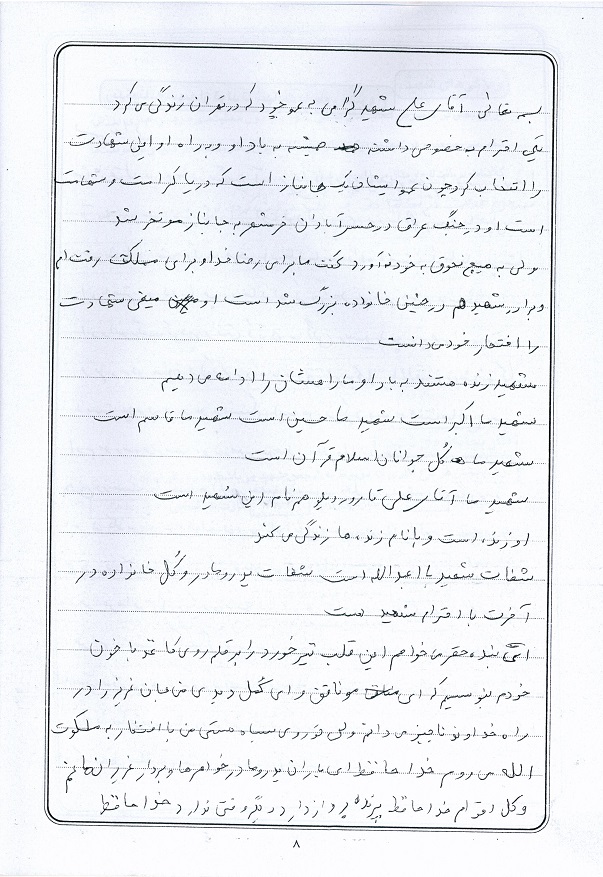 بسه تعالی آقای علی شهید گرامی به عمو خود که در تهران زندگی می کرد
یکی احترام به خصوصی داشته همیشه به یاد او و به راه او این شهادت
را انتخاب کرد چون عمو ایشان یک جانباز است که در یا گر است و شهادت
است او در جنگ عراق در حسر آبادان خرمشهر به جانباز موتخر شد
ولی به هیچ حقوق به خود نه آورد گفت ما برای رضا خدا و برای مملکت رفت ام
و برادر شهید هم در چنین خانواده بزرگ شد است او شهادت
را افتخار خود می دانست
شهید زنده هستند به یار او ما راهشان را ادامه می دهیم
شهید ما اکبر است شهید ما حسین است شهید ما قاسم است
شهید ما گل جوانان اسلام قرآن است
شهید ما آقای علی هم نام این شهید است
او زنده است و با نام زنده ها زندگی می کند
شفات شهید با ابدالله است شفات پدر و مادر و کل خانواده در
آخرت با احترام شهید است
بنده حقر می خواهم این قلب تیر خورد را بر قلم روی کاغذ با خون
خودم بنویسیم که ای منافق و ای من جان عزیز را در
راه خداوند ناچیز می دانم ولی تو روی سیاه هستی من با افتخار به ملکوت
الله می روم خدا حافظ ای یاران پدر و مادر خواهرها و بردار عزیزان خانم
و کل اقوام خدا حافظ پرنده پرواز دارد دیگر وقتی ندارد خدا حافظ
۸